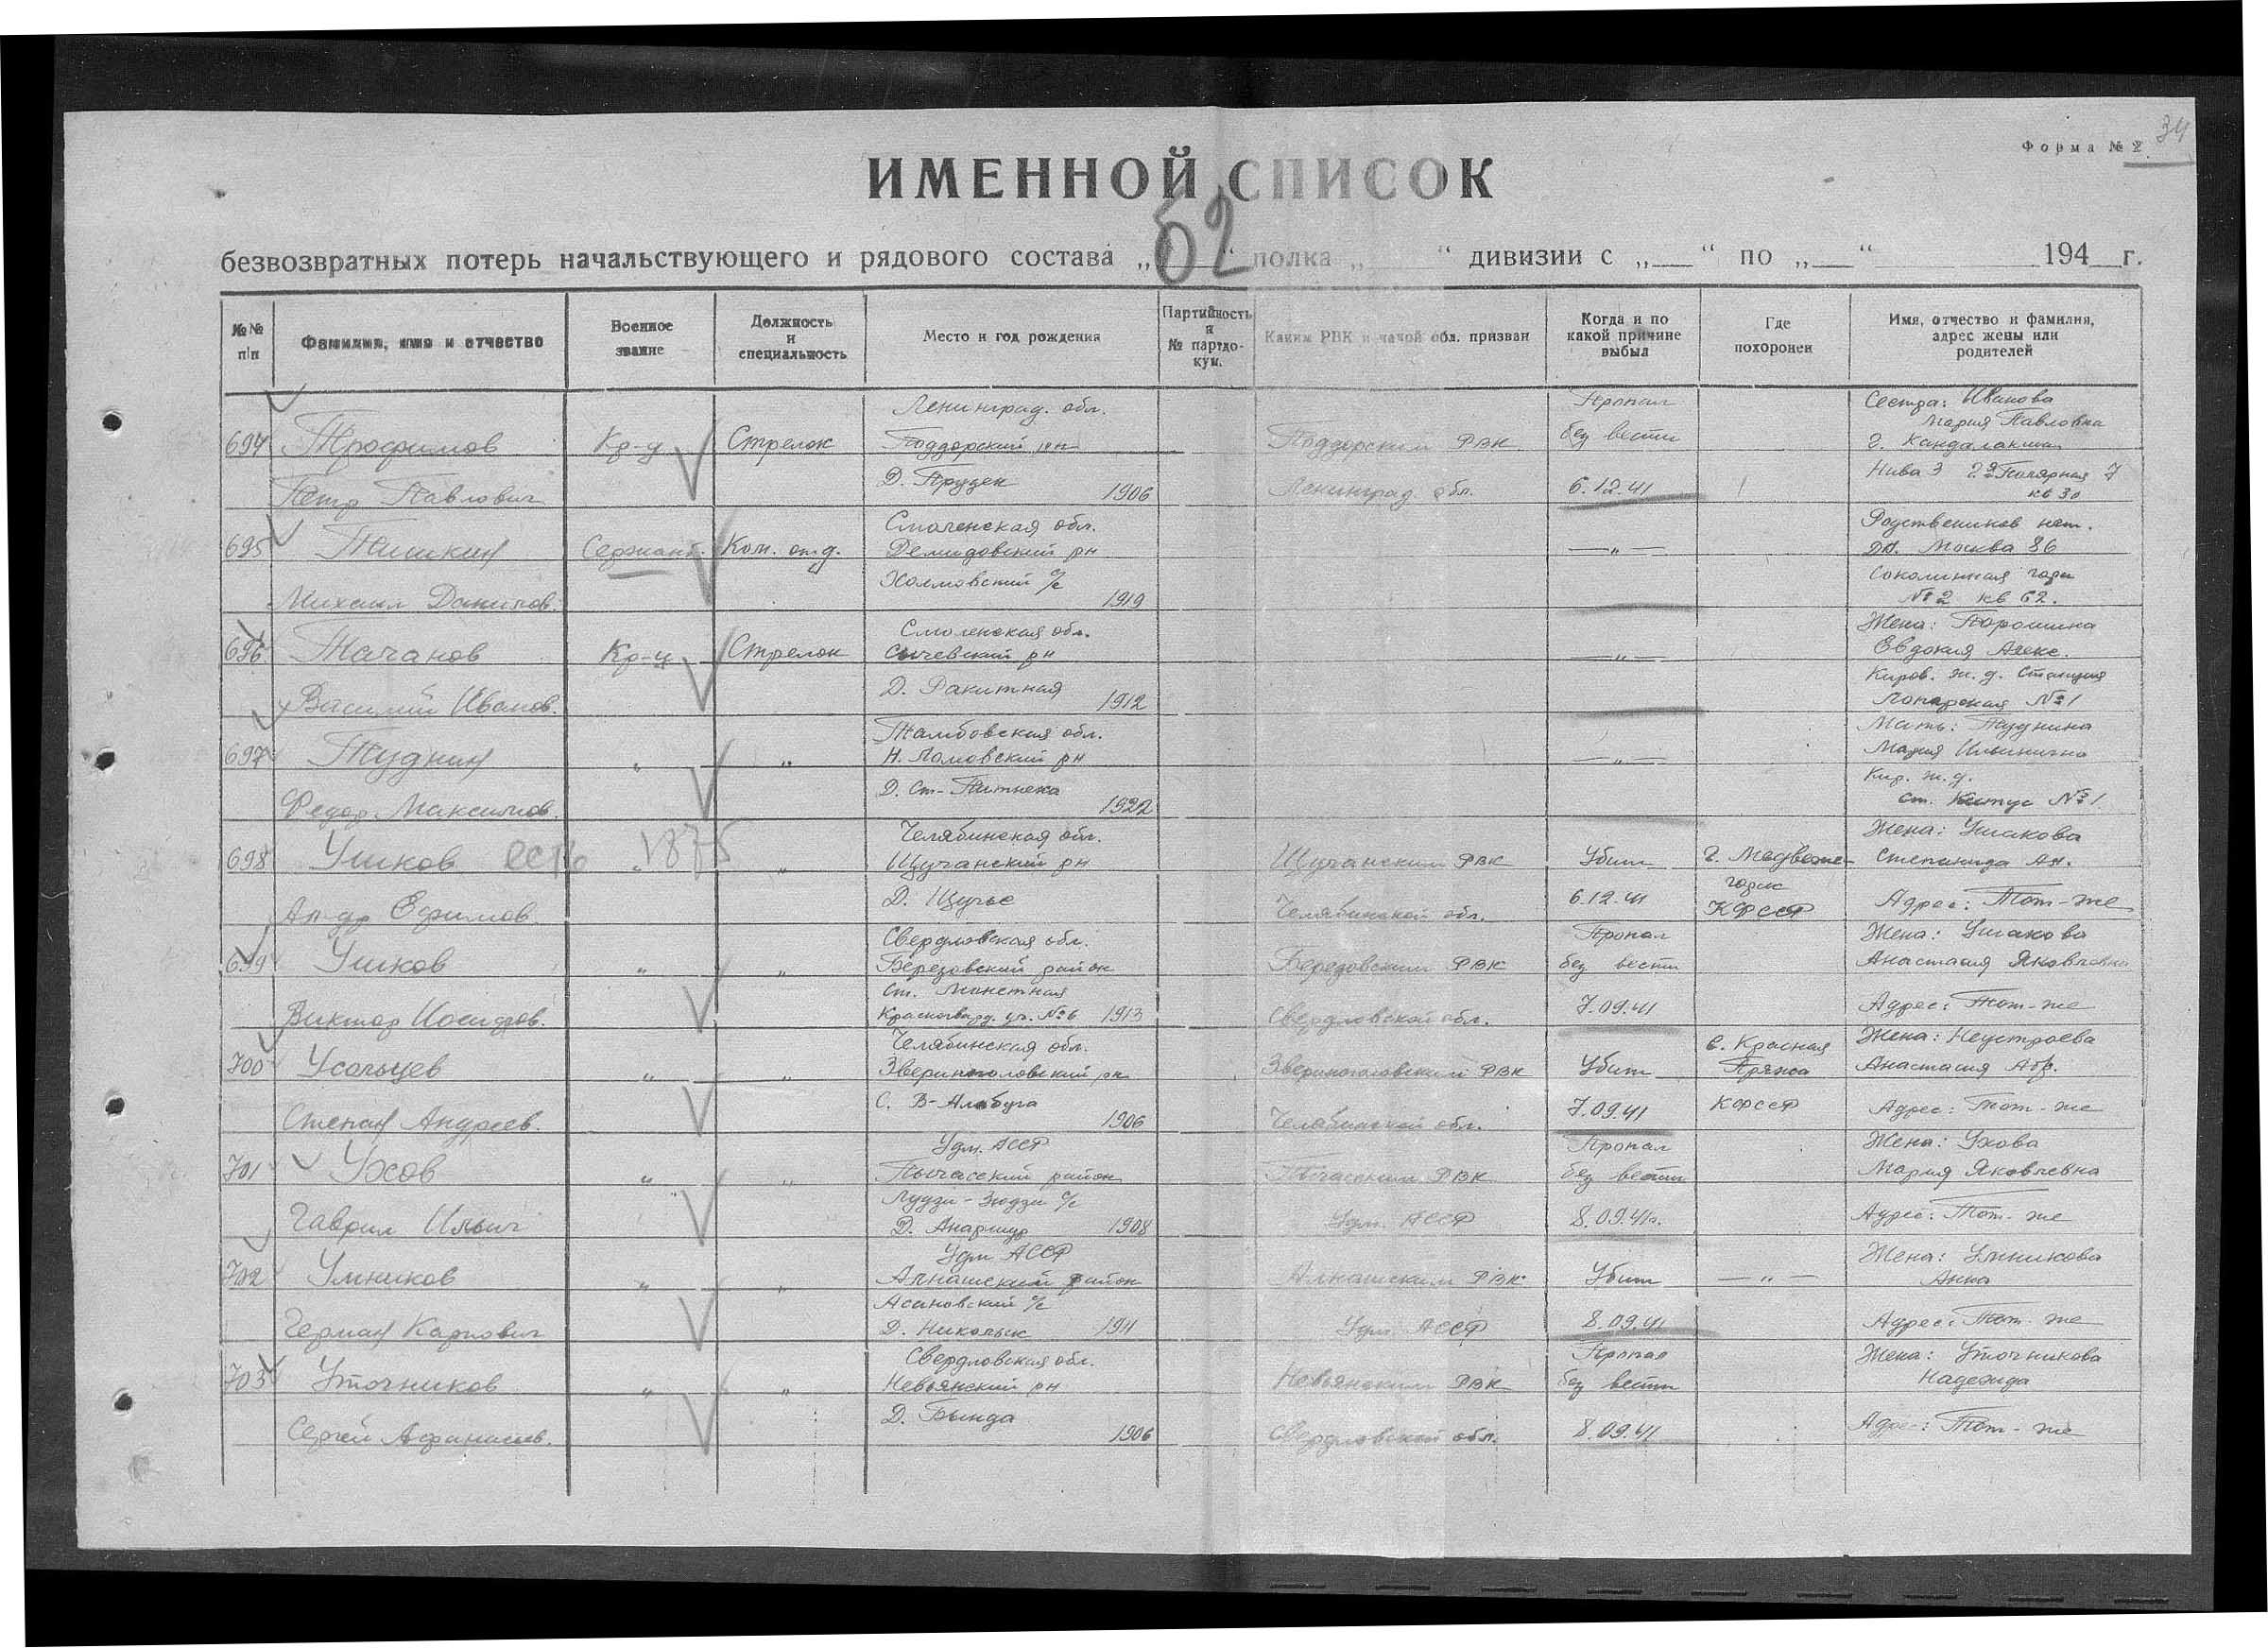 34
Форма № 2
ИМЕННОЙ СПИСОК
62
безвозвратных потерь начальствующего и рядового состава „ “ полка „ “ дивизии с „ “ по „ “ 194 г.
№№ п/п
Фамилия, имя и отчество
Военное звание
Должность и специальность
Место и год рождения
Партийность и № партдокум.
Каким РВК и какой обл. призван
Когда и по какой причине выбыл
Где похоронен
Имя, отчество и фамилия, адрес жены или родителей
694 Трофимов Петр Павлович
Кр-ц
Стрелок
Ленинград. обл.
Поддорский рн
Д. Прудек 1906
Поддорским РВК
Ленинград. обл.
Пропал
без вести
6.12.41
Сестра: Иванова
Мария Павловна
г. Кандалакша
Нива 3 Полярная 7
кв 30
695 Тишкин
Михаил Данилов.
Сержант
Ком. отд.
Смоленская обл.
Демидовский рн
Холмовский с/с
1919
— „ —
Родственников нет.
Москва 86
Соколинная гора
№ 2 кв 62.
696 Тачанов
Василий Иванов.
Кр-ц
Стрелок
Смоленская обл.
Сычевский рн
Д. Ракитная 1912
— „ —
Жена: Порошина
Евдокия Алекс.
Киров. ж. д. Станция
Лопарская № 1
697 Туднин
Федор Максимов.
„
„
Тамбовская обл.
Н. Ломовский рн
1922
— „ —
Мать: Туднина
Мария Ильинична
Кир. ж. д.
ст. № 1
698 Ушков есть 1875
Ал-др Ефимов.
„
„
Челябинская обл.
Щучанский рн
Д. Щучье
Щучанским РВК
Челябинской обл.
Убит
6.12.41
г. Медвеже-
горск
КФССР
Жена: Ушакова
Степанида Ал.
Адрес: Тот-же
699 Ушков
Виктор
„
„
Свердловская обл.
Березовский район
ст. Монетная
Красногвард. уч. № 6 1913
Березовским РВК
Свердловской обл.
Пропал
без вести
7.09.41
Жена: Ушакова
Анастасия Яковлевна
Адрес: Тот-же
700 Усольцев
Степан Андреев.
„
„
Челябинская обл.
Звериноголовский рн
1906
Звериноголовским РВК
Челябинской обл.
Убит
7.09.41
с. Красная
Пряжа
КФССР
Жена: Неустроева
Анастасия
Адрес: Тот-же
701 Ухов
Гаврил Ильич
„
„
Удм. АССР
Пычасский район
с/с
1908
Пычасским РВК
Удм. АССР
Пропал
без вести
8.09.41г.
Жена: Ухова
Мария Яковлевна
Адрес: Тот-же
702 Умников
Герман Карпович
„
„
Удм АССР
Алнашский район
Асановский с/с
Д. Никольск 1911
Алнашским РВК
Удм АССР
Убит
8.09.41
— „ —
Жена: Умникова
Анна
Адрес: Тот-же
703 Уточников
Сергей Афанасьев.
„
„
Свердловская обл.
Невьянский рн
Д. Бында
1906
Невьянским РВК
Свердловской обл.
Пропал
без вести
8.09.41
Жена: Уточникова
Надежда
Адрес: Тот-же